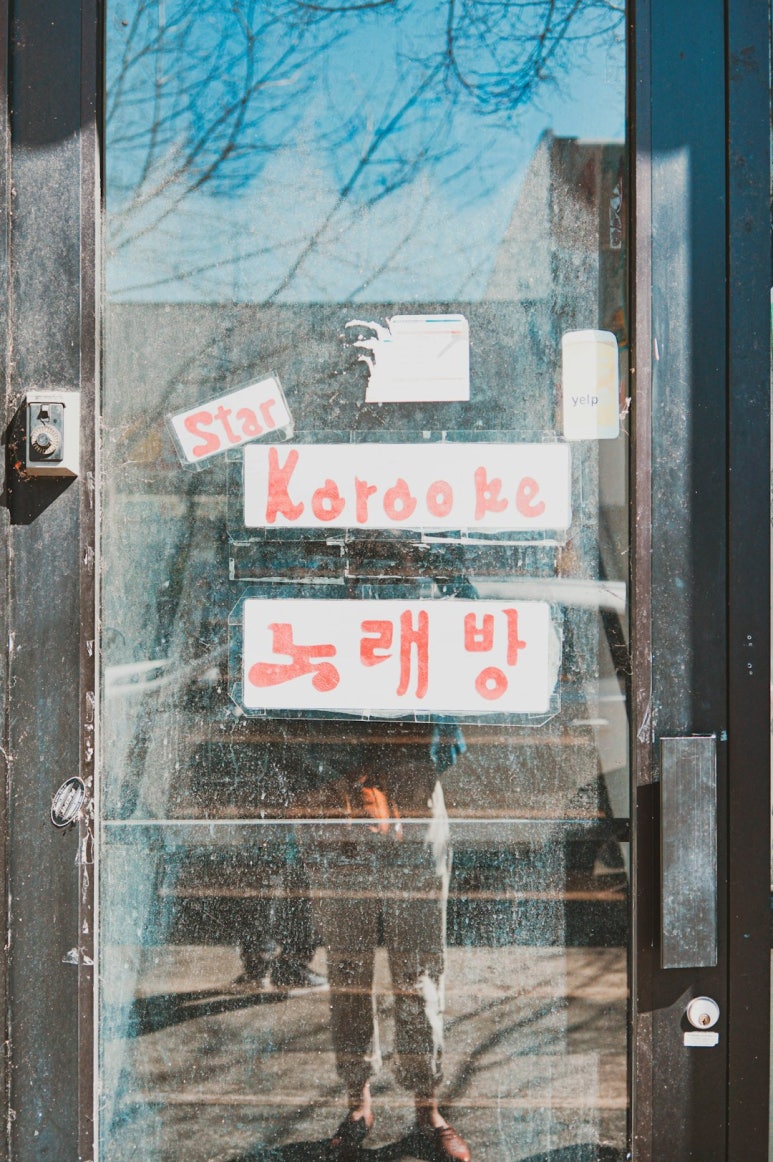 Star
Karaoke
노래방
yelp